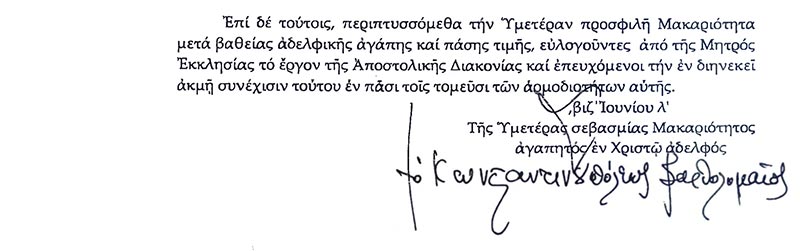 Ἐπί δέ τούτοις, περιπτυσσόμεθα τήν Ὑμετέραν προσφιλῆ Μακαριότητα
μετά βαθείας ἀδελφικῆς ἀγάπης καί πάσης τιμῆς, εὐλογοῦντες ἀπό τῆς Μητρός
Ἐκκλησίας τό ἔργον τῆς Ἀποστολικῆς Διακονίας καί ἐπευχόμενοι τήν ἐν διηνεκεῖ
ἀκμῇ συνέχισιν τούτου ἐν πᾶσι τοῖς τομεῦσι τῶν ἁρμοδιοτήτων αὐτῆς.
͵βιζ' Ἰουνίου λ'
Τῆς Ὑμετέρας σεβασμίας Μακαριότητος
ἀγαπητός ἐν Χριστῷ ἀδελφός
+ ὁ Κωνσταντινουπόλεως Βαρθολομαῖος